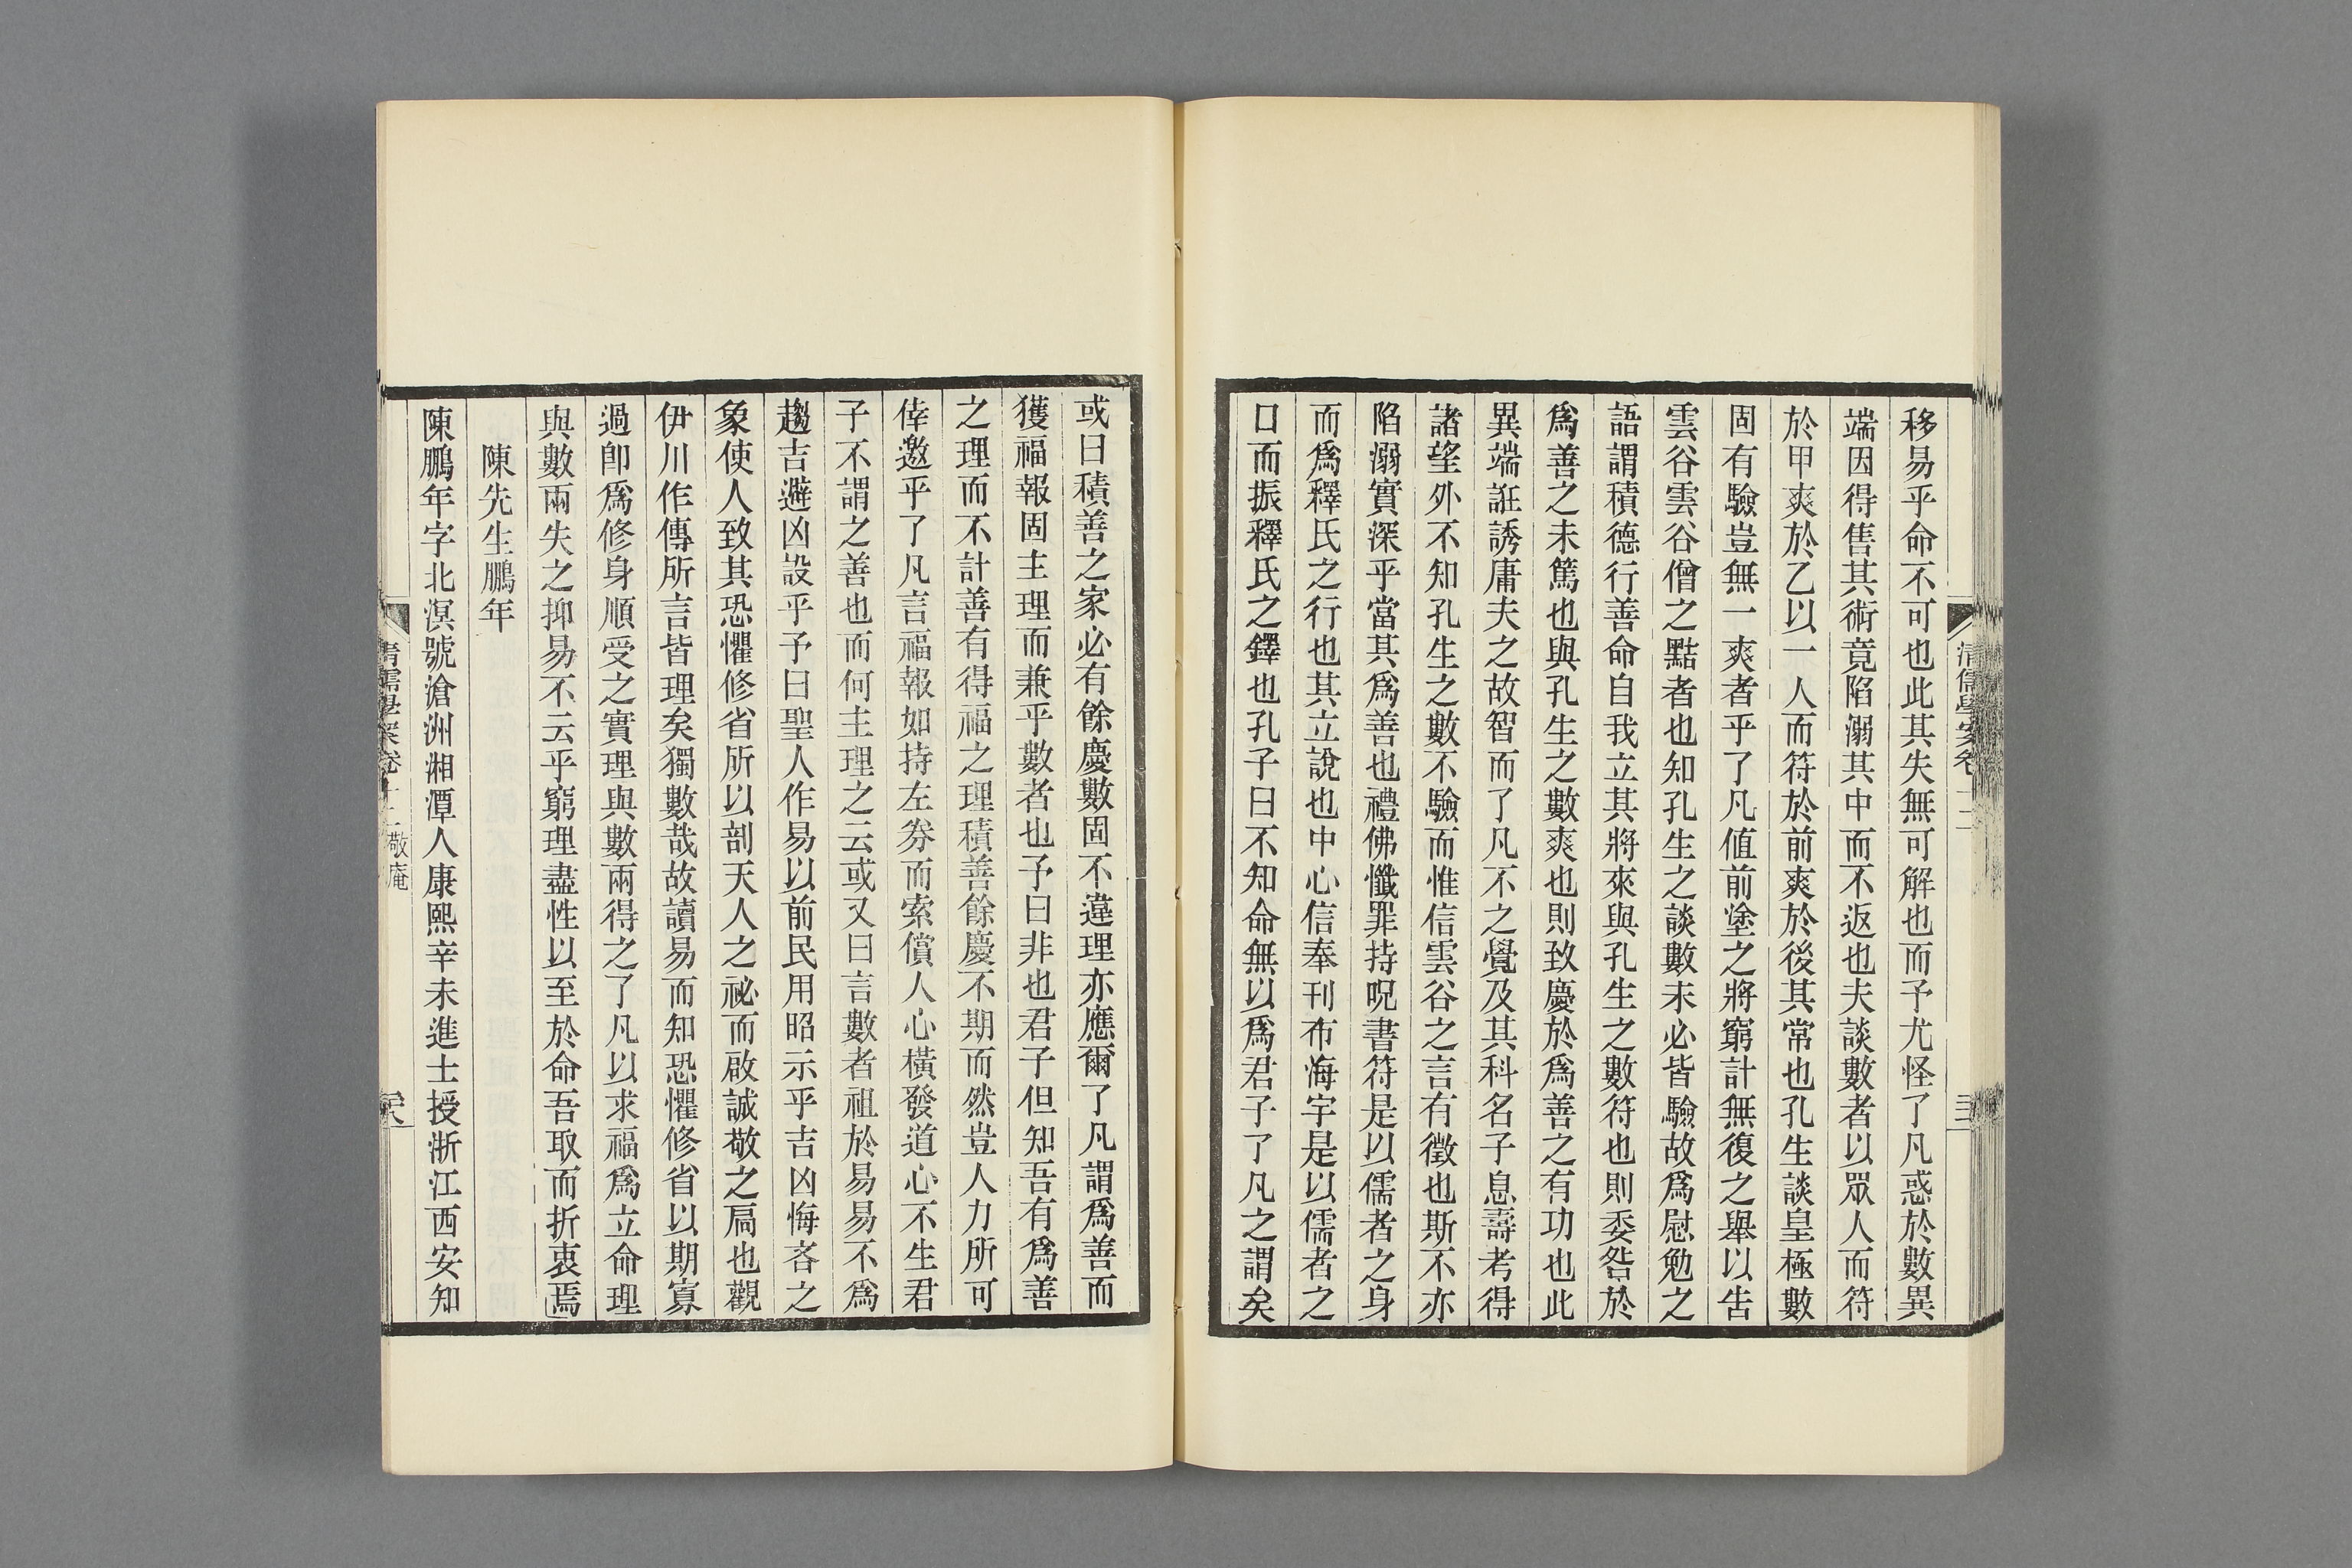 移易乎命不可也此其失無可解也而予尤怪了凡惑於數異
端因得售其術竟陷溺其中而不返也夫談數者以眾人而符
於甲爽於乙以一人而符於前爽於後其常也孔生談皇極數
固有驗豈無一爽者乎了凡値前塗之將窮計無復之舉以吿
雲谷雲谷僧之黠者也知孔生之談數未必皆驗故爲慰勉之
語謂積德行善命自我立其將來與孔生之數符也則委咎於
爲善之未篤也與孔生之數爽也則致慶於爲善之有功也此
異端誑誘庸夫之故智而了凡不之覺及其科名子息壽考得
諸望外不知孔生之數不驗而惟信雲谷之言有徵也斯不亦
陷溺實深乎當其爲善也禮佛懺罪持呪書符是以儒者之身
而爲釋氏之行也其立說也中心信奉刊布海宇是以儒者之
口而振釋氏之鐸也孔子曰不知命無以爲君子了凡之謂矣
清儒學案卷十二
或曰積善之家必有餘慶數固不違理亦應爾了凡謂爲善而
獲福報固主理而兼乎數者也予曰非也君子但知吾有爲善
之理而不計善有得福之理積善餘慶不期而然豈人力所可
倖邀乎了凡言福報如持左券而索償人心橫發道心不生君
子不謂之善也而何主理之云或又曰言數者祖於易易不爲
趨吉避凶設乎予曰聖人作易以前民用昭示乎吉凶悔吝之
象使人致其恐懼修省所以剖天人之祕而啟誠敬之扃也觀
伊川作傳所言皆理矣獨數哉故讀易而知恐懼修省以期寡
過卽爲修身順受之實理與數兩得之了凡以求福爲立命理
與數兩失之抑易不云乎窮理盡性以至於命吾取而折衷焉
陳先生鵬年
陳鵬年字北溟號滄洲湘潭人康熙辛未進士授浙江西安知
清儒學案卷十二 敬庵